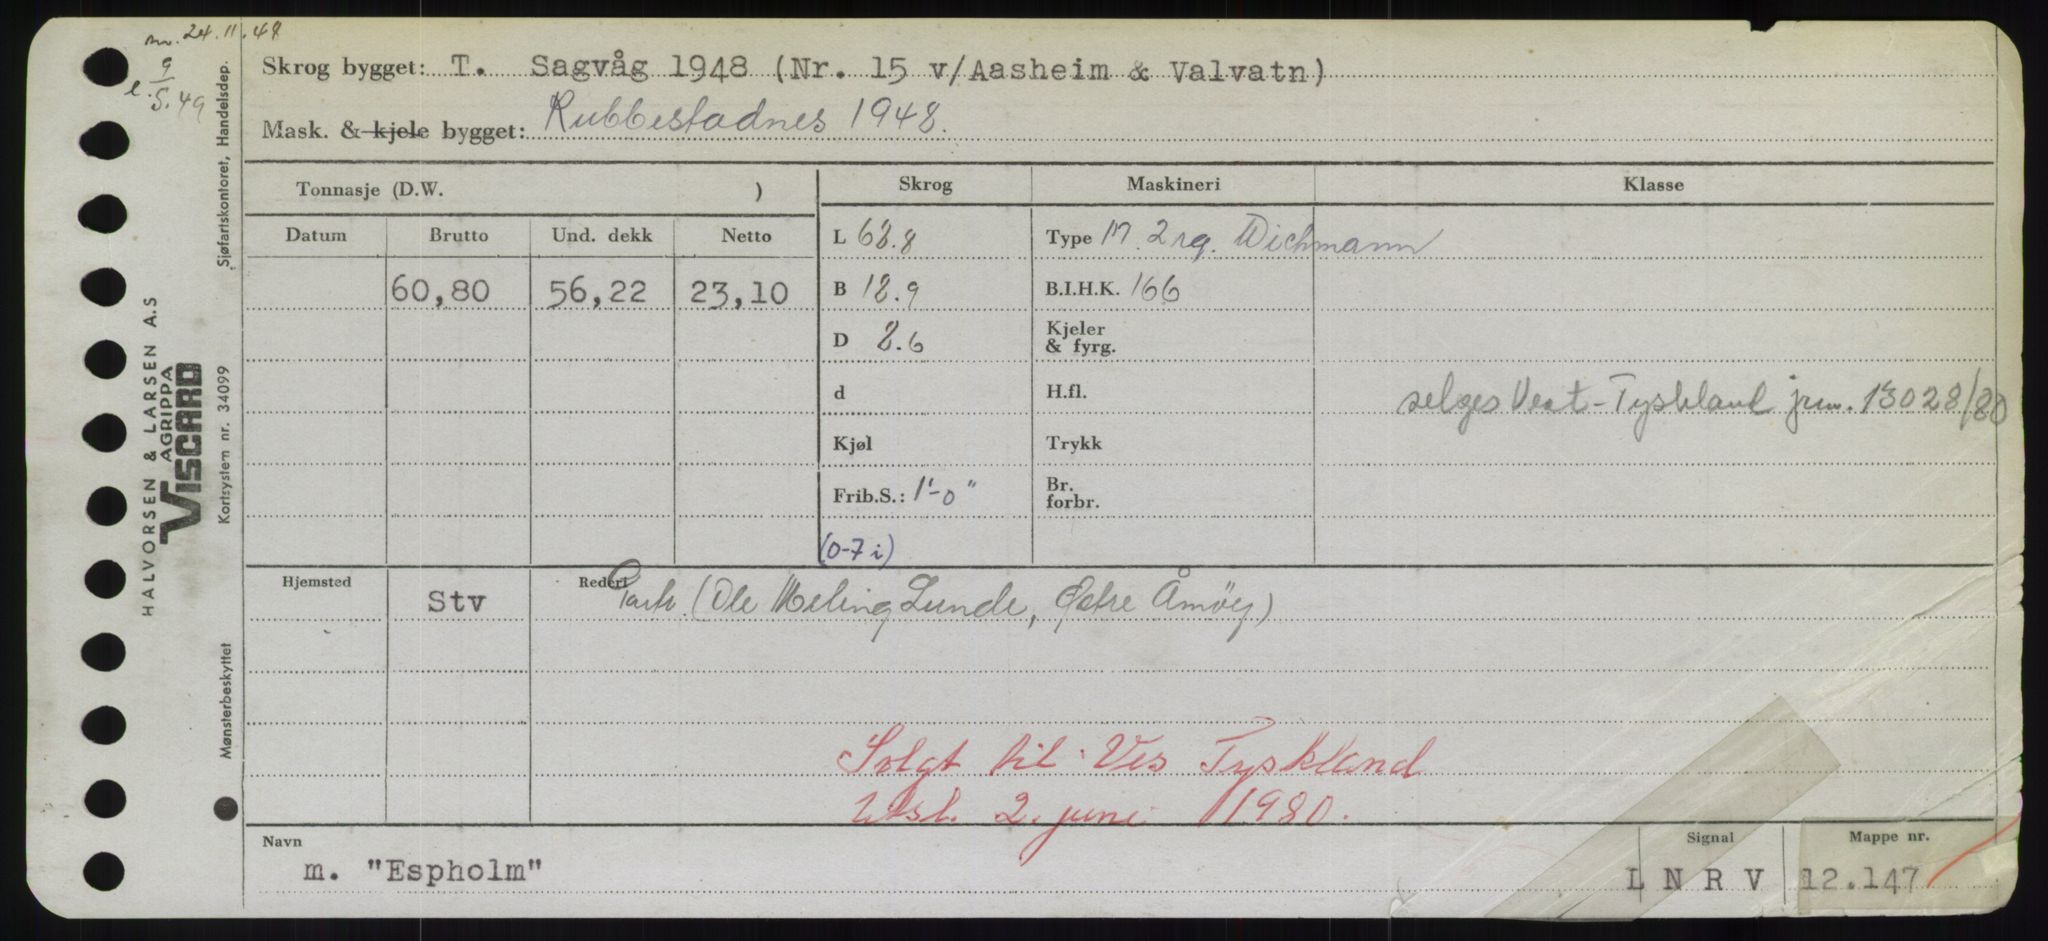 nr. 24.11.48
e. 9/5.49
Skrog bygget: T. Sagvåg 1948 (Nr. 15 v/Aasheim & Valvatn)
Mask. & kjele bygget: Rubbestadnes 1948.
Tonnasje (D.W. )
Skrog
Maskineri
Klasse
Datum
Brutto
Und. dekk
Netto
60,80
56,22
23,10
L 68.8
B 18.9
D 8.6
d
Kjøl
Frib.S.: 1'-0"
(0-7 i)
Type M. 2 rg. Wichmann
B.I.H.K. 166
Kjeler
& fyrg.
H.fl.
Trykk
Br.
forbr.
selges Vest-Tyskland jnr. 13028/80
Hjemsted
Stv
Rederi
Partr. (Ole Meling Lunde, Østre Åmøy)
Solgt til Ves Tyskland
Utsl. 2. juni 1980.
Navn
m. "Espholm"
Signal
L N R V
Mappe nr.
12.147
HALVORSEN & LARSEN A.S
AGRIPPA
VISCARD
Sjøfartskontoret, Handelsdep.
Kortsystem nr. 34099
Mønsterbeskyttet